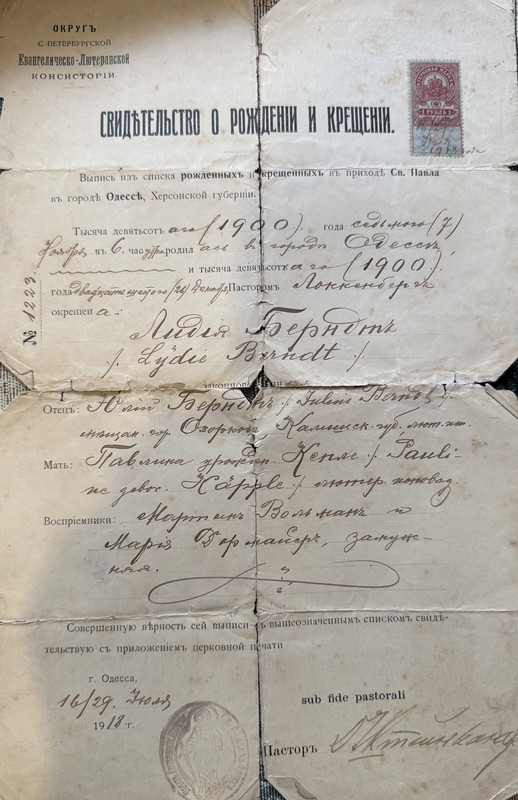 ОКРУГЪ
С.-ПЕТЕРБУРГСКОЙ
Евангелическо-Лютеранской
КОНСИСТОРІИ.
СВИДѢТЕЛЬСТВО О РОЖДЕНІИ И КРЕЩЕНІИ.
1 РУБЛЬ 1
Выпись изъ списка рожденныхъ и крещенныхъ въ приходѣ Св. Павла
въ городѣ Одессѣ, Херсонской губерніи.
Тысяча девятьсотаго (1900). года седьмого (7)
Ноября въ 6 час. утра родилась въ городѣ Одессѣ,
и тысяча девятьсотаго (1900)
года двадцать шестого (26) Декабря Пасторомъ
окрещена:
№ 1223.
Лидія Берндтъ
/. Lydie Berndt /.
законнорожденная
Отецъ: Юлій Берндтъ /. Julius Berndt /.
мѣщан. гор. Озоркова Калишск. губ. лют. исп.
Мать: Павлина урожден. Кепле /. Pauli-
ne Häpple /. лютер. исповѣд.
Воспріемники: Мартинъ Вольманъ и
Марія Дормайеръ, замуж-
няя.
Совершенную вѣрность сей выписи съ вышеозначеннымъ спискомъ свидѣ-
тельствую съ приложеніемъ церковной печати
г. Одесса,
16/29 Іюля
1918 г.
sub fide pastorali
Пасторъ